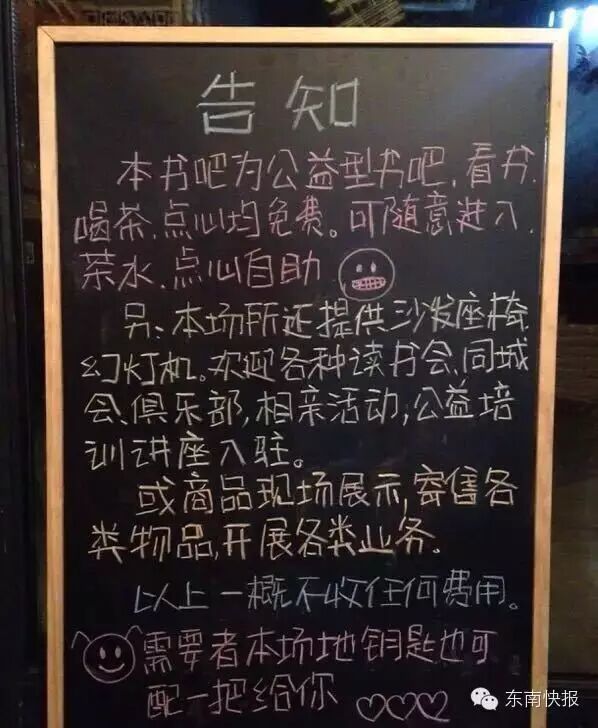 告知
本书吧为公益型书吧.看书.
喝茶.点心均免费。可随意进入.
茶水.点心自助
另:本场所还提供沙发座椅、
幻灯机。欢迎各种读书会、同城
会、俱乐部,相亲活动,公益培
训讲座入驻。
或商品现场展示,寄售各
类物品,开展各类业务。
以上一概不收任何费用。
需要者本场地钥匙也可
配一把给你
东南快报